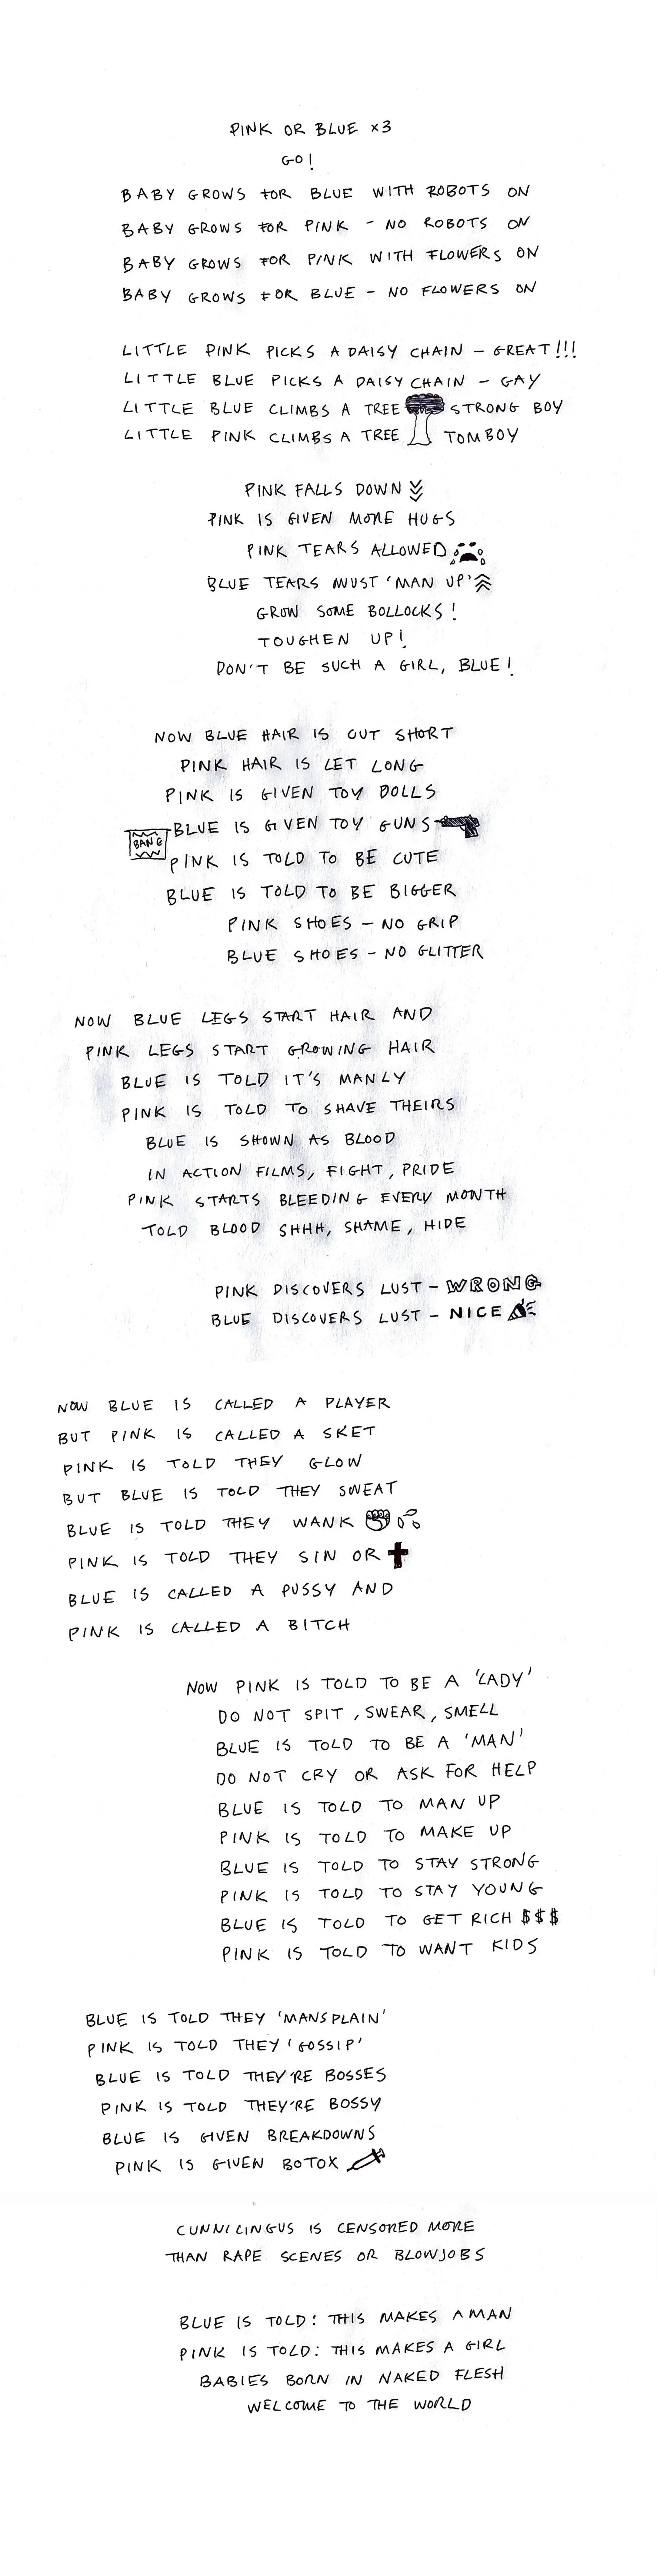 PINK OR BLUE x3
GO!
BABY GROWS FOR BLUE WITH ROBOTS ON
BABY GROWS FOR PINK - NO ROBOTS ON
BABY GROWS FOR PINK WITH FLOWERS ON
BABY GROWS FOR BLUE - NO FLOWERS ON
LITTLE PINK PICKS A DAISY CHAIN - GREAT!!!
LITTLE BLUE PICKS A DAISY CHAIN - GAY
LITTLE BLUE CLIMBS A TREE STRONG BOY
LITTLE PINK CLIMBS A TREE TOMBOY
PINK FALLS DOWN
PINK IS GIVEN MORE HUGS
PINK TEARS ALLOWED
BLUE TEARS MUST 'MAN UP'
GROW SOME BOLLOCKS!
TOUGHEN UP!
DON'T BE SUCH A GIRL, BLUE!
NOW BLUE HAIR IS CUT SHORT
PINK HAIR IS LET LONG
PINK IS GIVEN TOY DOLLS
BLUE IS GIVEN TOY GUNS
BANG
PINK IS TOLD TO BE CUTE
BLUE IS TOLD TO BE BIGGER
PINK SHOES - NO GRIP
BLUE SHOES - NO GLITTER
NOW BLUE LEGS START HAIR AND
PINK LEGS START GROWING HAIR
BLUE IS TOLD IT'S MANLY
PINK IS TOLD TO SHAVE THEIRS
BLUE IS SHOWN AS BLOOD
IN ACTION FILMS, FIGHT, PRIDE
PINK STARTS BLEEDING EVERY MONTH
TOLD BLOOD SHHH, SHAME, HIDE
PINK DISCOVERS LUST - WRONG
BLUE DISCOVERS LUST - NICE
NOW BLUE IS CALLED A PLAYER
BUT PINK IS CALLED A SKET
PINK IS TOLD THEY GLOW
BUT BLUE IS TOLD THEY SWEAT
BLUE IS TOLD THEY WANK
PINK IS TOLD THEY SIN OR
BLUE IS CALLED A PUSSY AND
PINK IS CALLED A BITCH
NOW PINK IS TOLD TO BE A 'LADY'
DO NOT SPIT, SWEAR, SMELL
BLUE IS TOLD TO BE A 'MAN'
DO NOT CRY OR ASK FOR HELP
BLUE IS TOLD TO MAN UP
PINK IS TOLD TO MAKE UP
BLUE IS TOLD TO STAY STRONG
PINK IS TOLD TO STAY YOUNG
BLUE IS TOLD TO GET RICH $$$
PINK IS TOLD TO WANT KIDS
BLUE IS TOLD THEY 'MANSPLAIN'
PINK IS TOLD THEY 'GOSSIP'
BLUE IS TOLD THEY'RE BOSSES
PINK IS TOLD THEY'RE BOSSY
BLUE IS GIVEN BREAKDOWNS
PINK IS GIVEN BOTOX
CUNNILINGUS IS CENSORED MORE
THAN RAPE SCENES OR BLOWJOBS
BLUE IS TOLD: THIS MAKES A MAN
PINK IS TOLD: THIS MAKES A GIRL
BABIES BORN IN NAKED FLESH
WELCOME TO THE WORLD